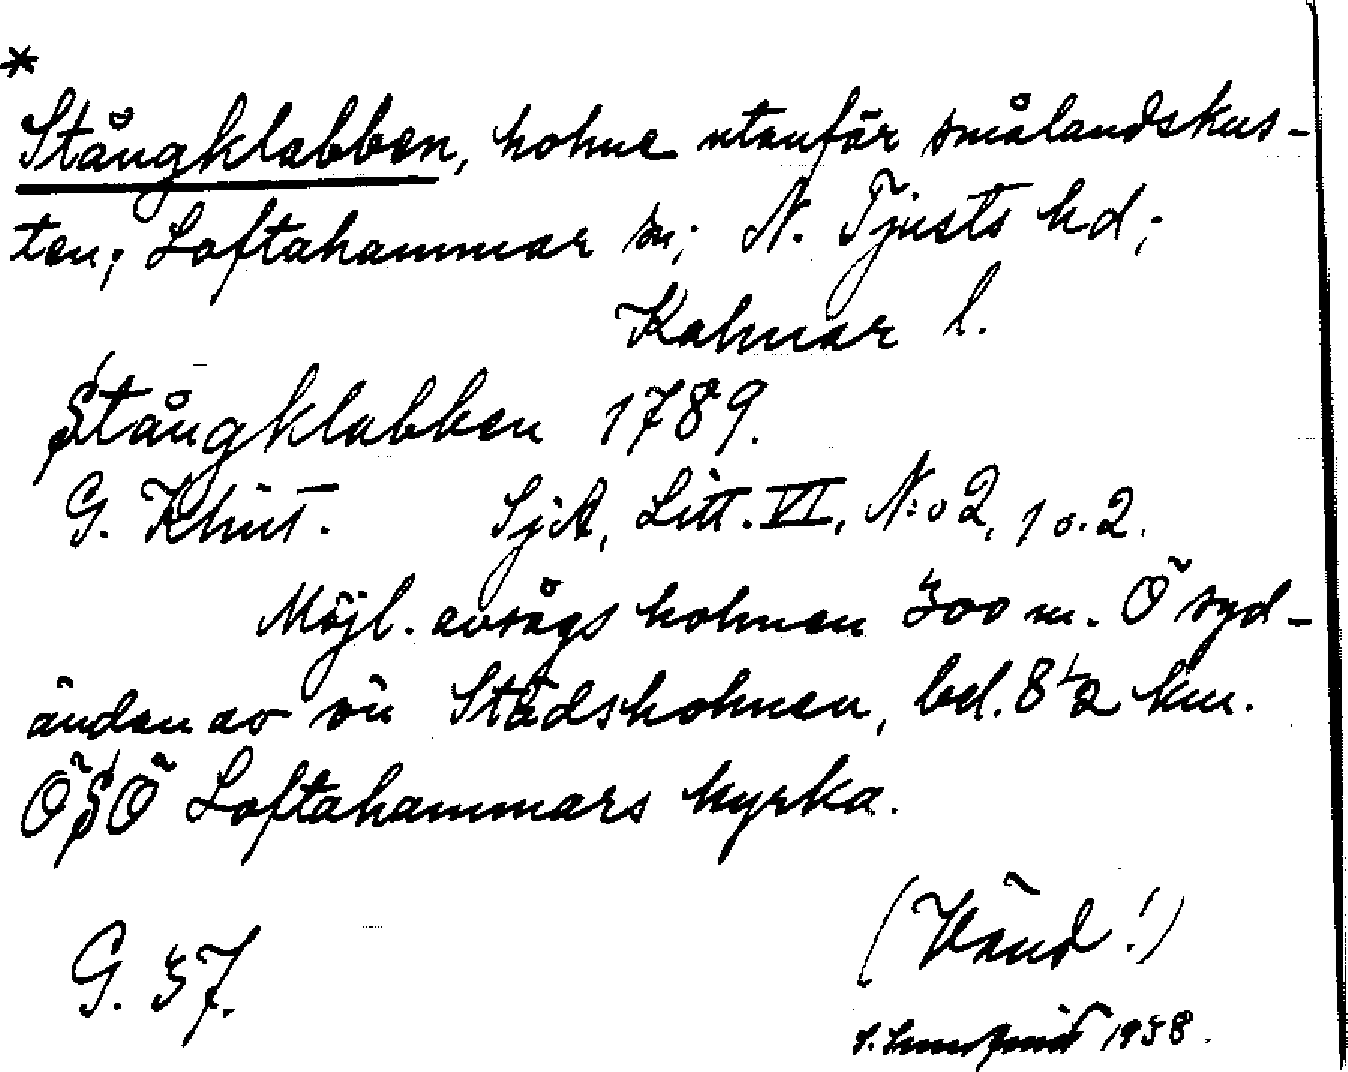 *
Stångklabben, holme utanför smålandskus-
ten; Loftahammar sn; N. Tjusts hd;
Kalmar l.
Stångklabben 1789.
G. Klint. SjA, Litt. VI, N:o 2, 1 o. 2.
Möjl. avsågs holmen 300 m. Ö syd-
ändan av ön Städsholmen, bel. 8 1/2 km.
ÖSÖ Loftahammars kyrka.
(Vänd!)
G. 37.
1958.